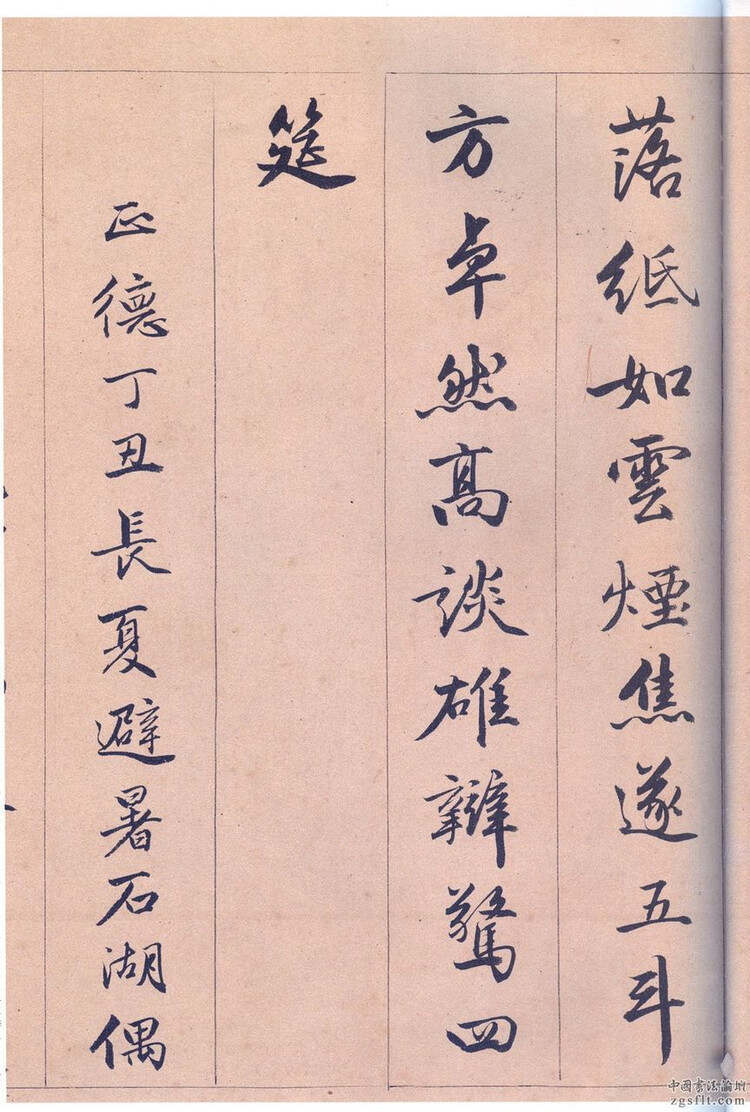 落紙如雲煙焦遂五斗
方卓然高談雄辯驚四
筵
正德丁丑長夏避暑石湖偶
中國書法論壇
zgsflt.com